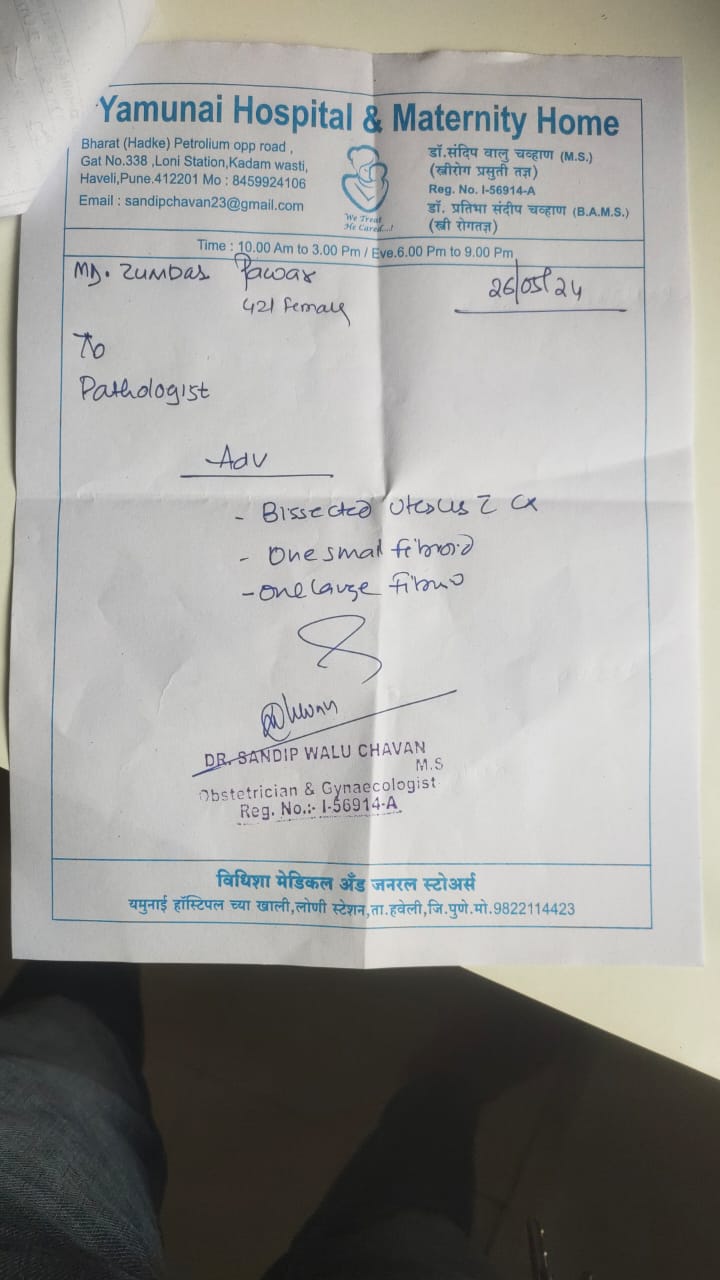 Yamunai Hospital & Maternity Home
Bharat (Hadke) Petrolium opp road ,
Gat No.338 ,Loni Station,Kadam wasti,
Haveli,Pune.412201 Mo : 8459924106
Email : sandipchavan23@gmail.com
We Treat
He Cared...!
डॉ.संदिप वालु चव्हाण (M.S.)
(स्त्रीरोग प्रसुती तज्ञ)
Reg. No. I-56914-A
डॉ. प्रतिभा संदीप चव्हाण (B.A.M.S.)
(स्त्री रोगतज्ञ)
Time : 10.00 Am to 3.00 Pm / Eve.6.00 Pm to 9.00 Pm
Pawar
26/05/24
42/ Female
To
Pathologist
Adv
- Bissected Uterus c̄ cx
- One small fibroid
- One large
DR. SANDIP WALU CHAVAN
M.S
Obstetrician & Gynaecologist
Reg. No.:- I-56914-A
विधिशा मेडिकल अँड जनरल स्टोअर्स
यमुनाई हॉस्टिपल च्या खाली,लोणी स्टेशन,ता.हवेली,जि.पुणे.मो.9822114423